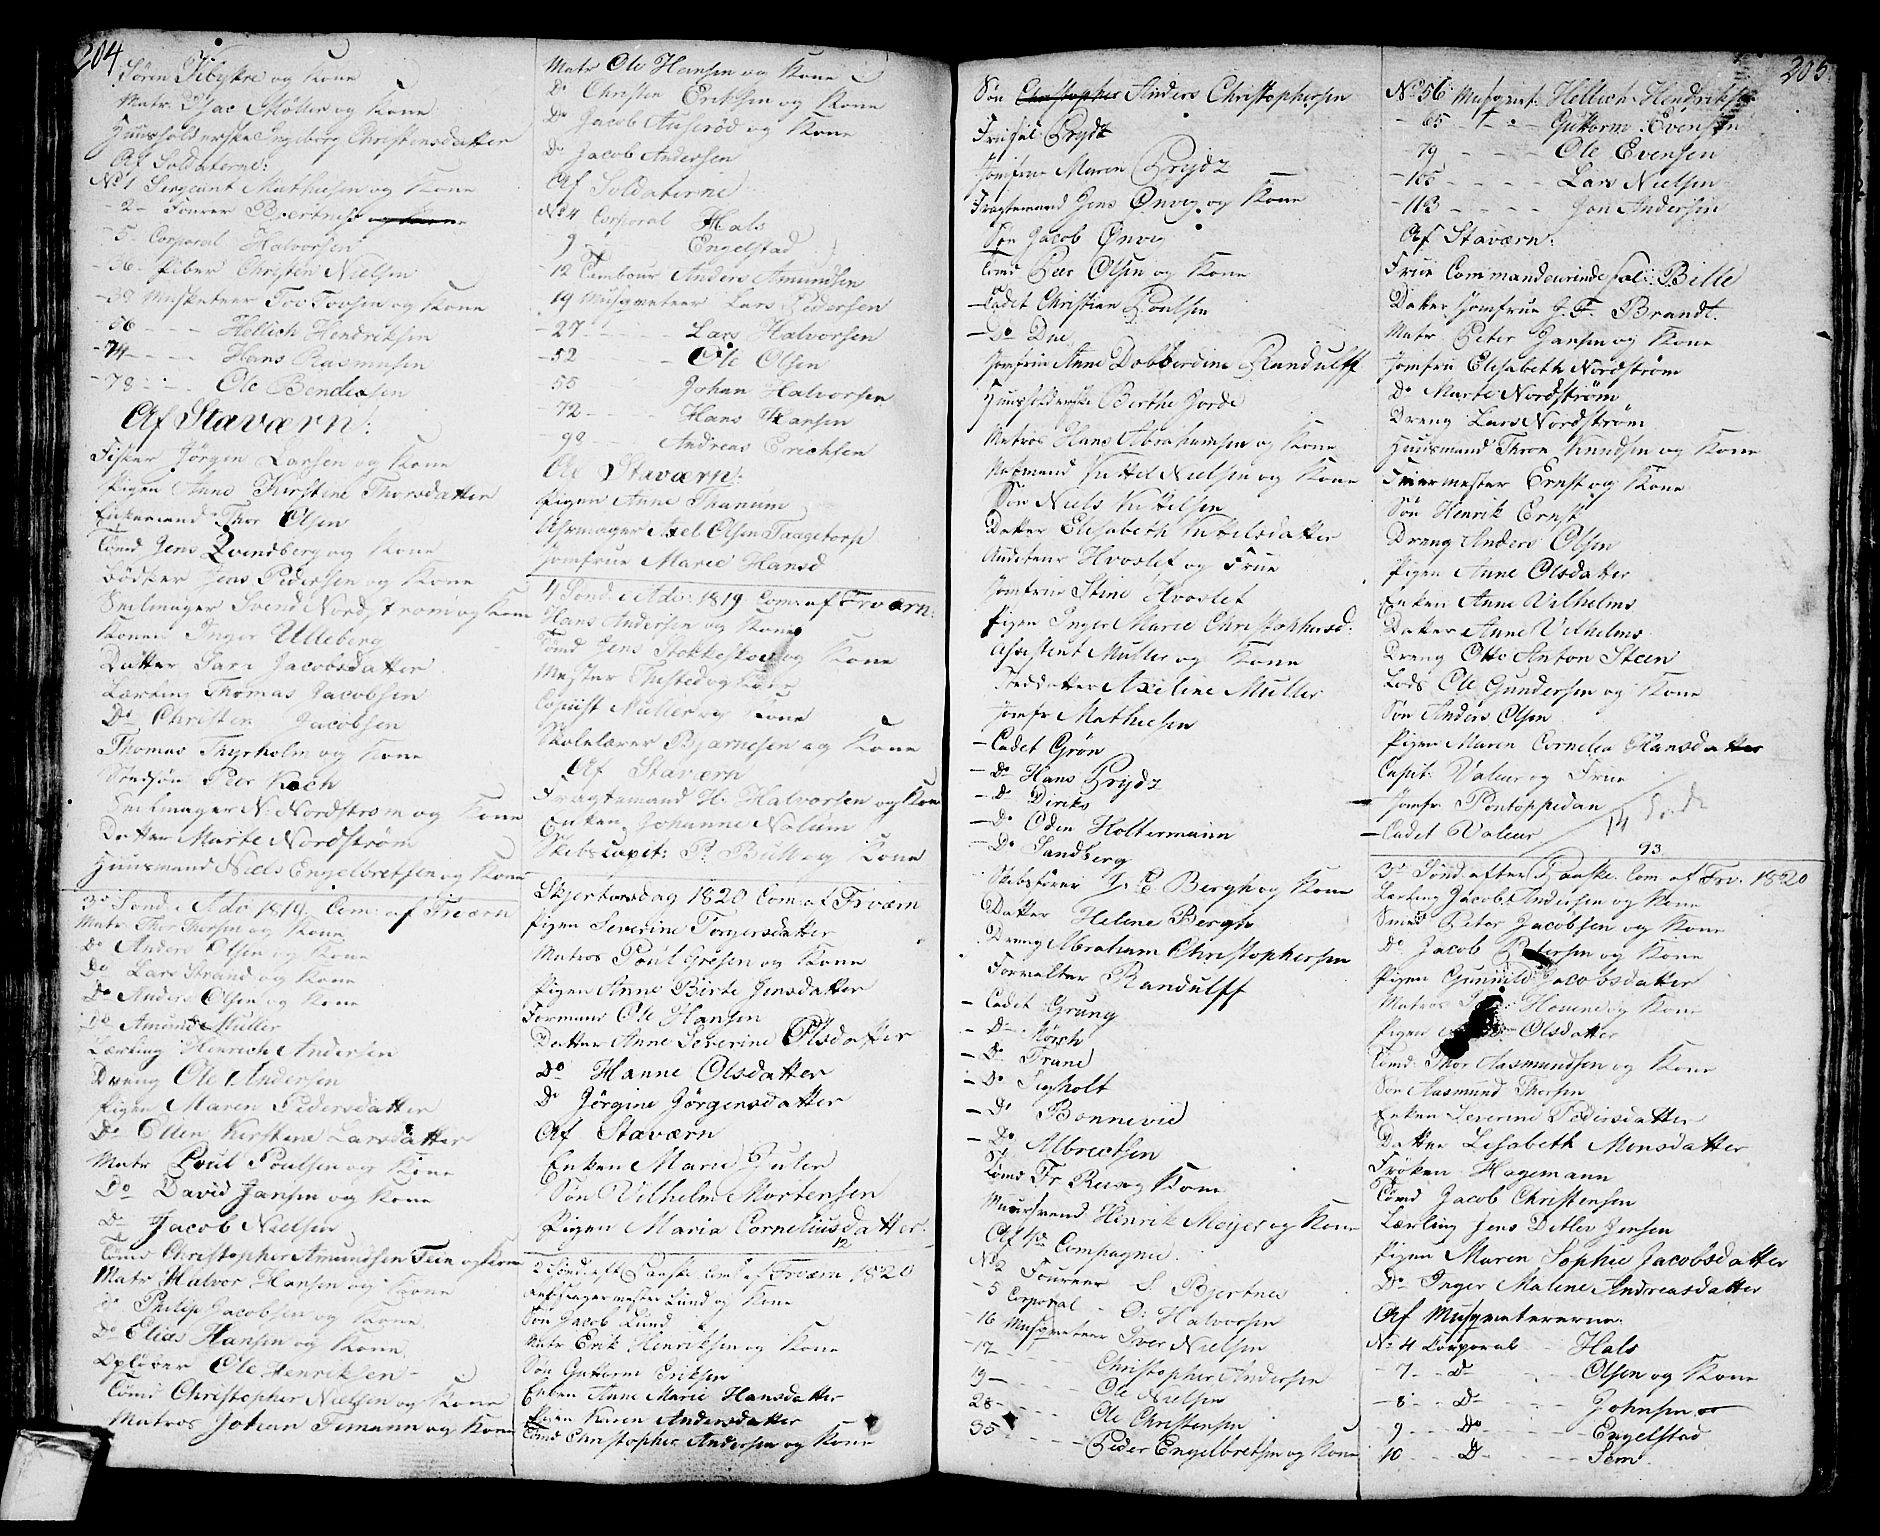 204
Sören Kibykre og Kone
Matr. Isac Möller og Kone
Huusholderske Ingeborg Christensdatter
Af Soldaterne:
No 1 Sergeant Mathiesen og Kone
- 2 - Fourer Bjertnes og Kone
- 5. Corporal Halvorsen
- 36. Piber Christen Nielsen
- 39 Musketeer Tov Tovsen og Kone
- 56 - - - Hellich Hendriksen
- 74 - - - Hans Rasmusen
- 78 - - - Ole Bendixsen
Af Staværn:
Fisker Jörgen Larsen og Kone
Pigen Anne Kirstine Thorsdatter
Enkemand Thor Olsen
Tömd Jens Zvendberg og Kone
Bödker Jens Pedersen og Kone
Seilmager Svend Nordström og Kone
Konen Inger Ulleberg
Datter Sara Jacobsdatter
Lærling Thomas Jacobsen
Do Christen Jacobsen
Thomas Thyrholm og Kone
Peer Koch
Seilmager N. Nordstrøm og Kone
Datter Marte Nordstrøm
Huusmand Niels Engelbretsen og Kone
3die Sönd. i Adv: 1819. Com: af Frværn
Matr Thor Thorsen og Kone
Do Anders Olsen og Kone
Do Lars Strand og Kone
Do Anders Olsen og Kone
Do Amund Müller
Lærling Henrich Andersen
Dreng Ole Andersen
Pigen Maren Pedersdatter
Do Ellen Kirstine Larsdatter
Matr Poul Poulsen og Kone
Do David Jansen og Kone
Do Jacob Nielsen
Tömd Christopher Amundsen Tein og Kone
Matr Halvor Hansen og Kone
Do Philip Jacobsen og Kone
Do Elias Hansen og Kone
Oplöber Ole Henriksen
Tömd Christopher Nielsen og Kone
Matros Johan Timann og Kone
Matr Ole Hansen og Kone
Do Christen Eriksen og Kone
Do Jacob Auseröd og Kone
Do Jacob Andersen
Af Soldaterne
No 4 Corporal Hals
- 9 - Engelstad
- 12 Tambour Anders Amundsen
19 Musqueteer Lars Pedersen
- 27 - - Lars Halvorsen
- 52 - - Ole Olsen
55 Johan Halvorsen
- 72 - - Hans Hansen
- 90 - - Andreas Erichsen
Af Staværn:
Pigen Anne Thanum
Uhrmager Axel Olsen Taagetorp
Jomfrue Marie Hansd
4 Sönd. i Adv: 1819 Com: af Frværn:
Hans Andersen og Kone
Tömd Jens Stokkeskov og Kone
Mester Thisted og Kone
Copiist Müller og Kone
Skolelærer Bjarnesen og Kone
Af Staværn
Fragtemand H. Halvorsen og Kone
Enken Johanne Nalum
Skibscapit: P: Bull og Kone
Skjertorsdag 1820 Com: af Frværn
Pigen Severine Torgersdatter
Matros Poul Gresen og Kone
Pigen Anne Birte Jensdatter
Formand Ole Hansen
Datter Anne Severine Olsdatter
Do Hanne Olsdatter
Do Jörgine Jörgensdatter
Af Staværn
Enken Marie Guler
Sön Vilhelm Mortensen
Pigen Maria Corneliusdatter
12
2 Sönd: eft Paaske Com: af Frværn 1820
Lund og Kone
Sön Jacob Lund
Matr Erik Henriksen og Kone
Sön Guttorm Eriksen
Enken Anne Marie Hansdatter
Pigen Karen Andersdatter
Tömd Christopher Andersen og Kone
205
Sön Christopher Anders Christophersen
Prydz
Jomfrue Maren Prydz
Fragtemand Jens Önvig og Kone
Sön Jacob Önvig
Tömd Peer Olsen og Kone
- Cadet Christian Poulsen
- Do Due
Jomfrue Anne Dobberdine Randulff
Huusholderske Berthe Jorde
Matros Hans Abrahamsen og Kone
Kittel Nielsen og Kone
Sön Niels Kittelsen
Datter Elisabeth Kittelsdatter
Auditeur Hvoslef og Frue
Jomfrue Stine Hvoslef
Pigen Inger Marie Christophersd:
Assistent Müller og Kone
Axeline Müller
Jomfr Mathiesen
- Cadet Grön
- Do Hans Prydz
- Do Diriks
- Do Oden Holtermann
- Do Sandberg
Skibsförer J. C Bergh og Kone
Datter Helene Bergh
Dreng Abraham Christophersen
Forvalter Randulff
- Cadet Grung
- Do Mörch
- Do Trane
- Do Sigholt
- Do Bonnevie
- Do Albrectsen
Tömd Fr Reis og Kone
Muursvend Henrik Meijer og Kone
Af 4de Compagnie
No 2 Foureer S. Bjertnes
- 5 Corporal - O: Halvorsen
16 Musqueteer Iver Nielsen
17 - - - Christopher Andersen
19 - - - Ole Nielsen
28 - - - Ole Christensen
35 - - - Peder Engelbretsen og Kone
No 56 Musquet: Hellich Hendriksen
- 65 - - Guttorm Evensen
- 79 - - - Ole Evensen
- 105 - - - - Lars Nielsen
- 113 - - - - Jon Andersen
Af Staværn:
Frue Commandeurinde Sal: Bille
Datter Jomfrue J. F. Brandt
Matr Peter Jansen og Kone
Jomfru Elisabeth Nordström
Do Marte Nordström
Dreng Lars Nordström
Huusmand Thron Knudsen og Kone
Fiermester Ernst og Kone
Sön Henrik Ernst
Dreng Anders Olsen
Pigen Anne Olsdatter
Enken Anne Vilhelms
Datter Anne Vilhelms
Dreng Otto Anton Steen
Lods Ole Gundersen og Kone
Sön Anders Olsen
Pigen Maren Cornelia Hansdatter
Capit: Valeur og Frue
Jomfr. Pontoppidan
- Cadet Valeur
14
93
3die Sönd. efter Paaske. Com: af Frv. 1820
Lærling Jacob Andersen og Kone
Smed Peter Jacobsen og Kone
Do Jacob Petersen og Kone
Pigen Gunnild Jacobsdatter
Matros Heuene og Kone
Pigen Olsdatter
Tömd Thor Aasmundsen og Kone
Sön Aasmund Thorsen
Enken Severine Pedersdatter
Datter Lisabeth Monsdatter
Fröken Hagemann
Tömd Jacob Christensen
Lærling Jens Detlev Jensen
Pigen Maren Sophie Jacobsdatter
Do Inger Maline Andreasdatter
Af Musqueterne:
No 4 Corporal - Hals
- 7 - - Do - - - Olsen og Kone
- 8 - Do - - - Johnsen
- 9 - - Do - - - Engelstad
10 - - Do - - - Sem